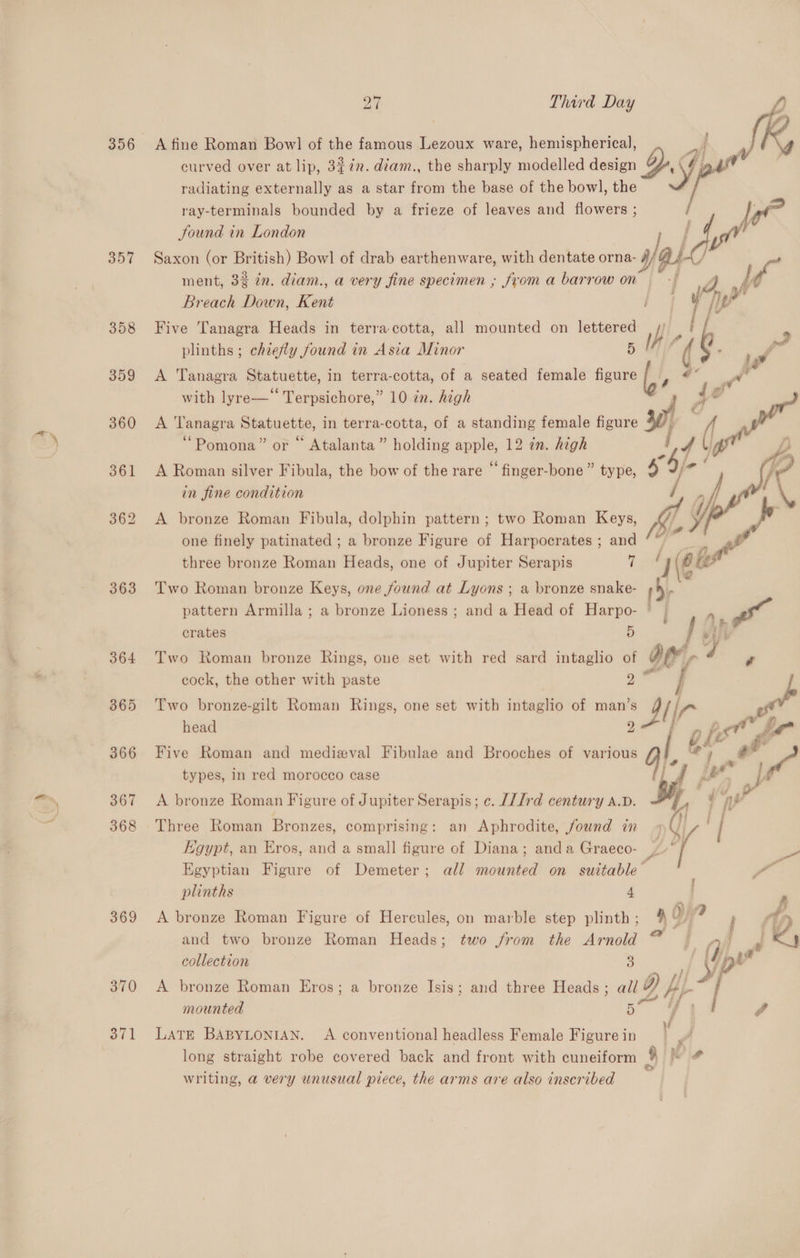 27 Third Day
356 A fine Roman Bowl of the famous Lezoux ware, hemispherical,
curved over at lip, 3¾ in. diam., the sharply modelled design
radiating externally as a star from the base of the bowl, the
ray-terminals bounded by a frieze of leaves and flowers ;
found in London
357 Saxon (or British) Bowl of drab earthenware, with dentate orna-
ment, 3¾ in. diam., a very fine specimen ; from a barrow on
Breach Down, Kent
358 Five Tanagra Heads in terra cotta, all mounted on lettered
plinths ; chiefly found in Asia Minor 5
359 A Tanagra Statuette, in terra-cotta, of a seated female figure
with lyre—“ Terpsichore,” 10 in. high
360 A Tanagra Statuette, in terra-cotta, of a standing female figure
“Pomona” or “ Atalanta” holding apple, 12 in. high
361 A Roman silver Fibula, the bow of the rare “finger-bone” type,
in fine condition
362 A bronze Roman Fibula, dolphin pattern ; two Roman Keys,
one finely patinated ; a bronze Figure of Harpocrates ; and
three bronze Roman Heads, one of Jupiter Serapis 7
363 Two Roman bronze Keys, one found at Lyons ; a bronze snake-
pattern Armilla ; a bronze Lioness ; and a Head of Harpo-
crates 5
364 Two Roman bronze Rings, one set with red sard intaglio of
cock, the other with paste 2
365 Two bronze-gilt Roman Rings, one set with intaglio of man’s
head 2
366 Five Roman and mediæval Fibulae and Brooches of various
types, in red morocco case
367 A bronze Roman Figure of Jupiter Serapis ; c. IIIrd century A.D.
368 Three Roman Bronzes, comprising: an Aphrodite, found in
Egypt, an Eros, and a small figure of Diana ; and a Graeco-
Egyptian Figure of Demeter ; all mounted on suitable
plinths 4
369 A bronze Roman Figure of Hercules, on marble step plinth ;
and two bronze Roman Heads; two from the Arnold
collection 3
370 A bronze Roman Eros ; a bronze Isis ; and three Heads ; all
mounted 5
371 LATE BABYLONIAN. A conventional headless Female Figure in
long straight robe covered back and front with cuneiform
writing, a very unusual piece, the arms are also inscribed